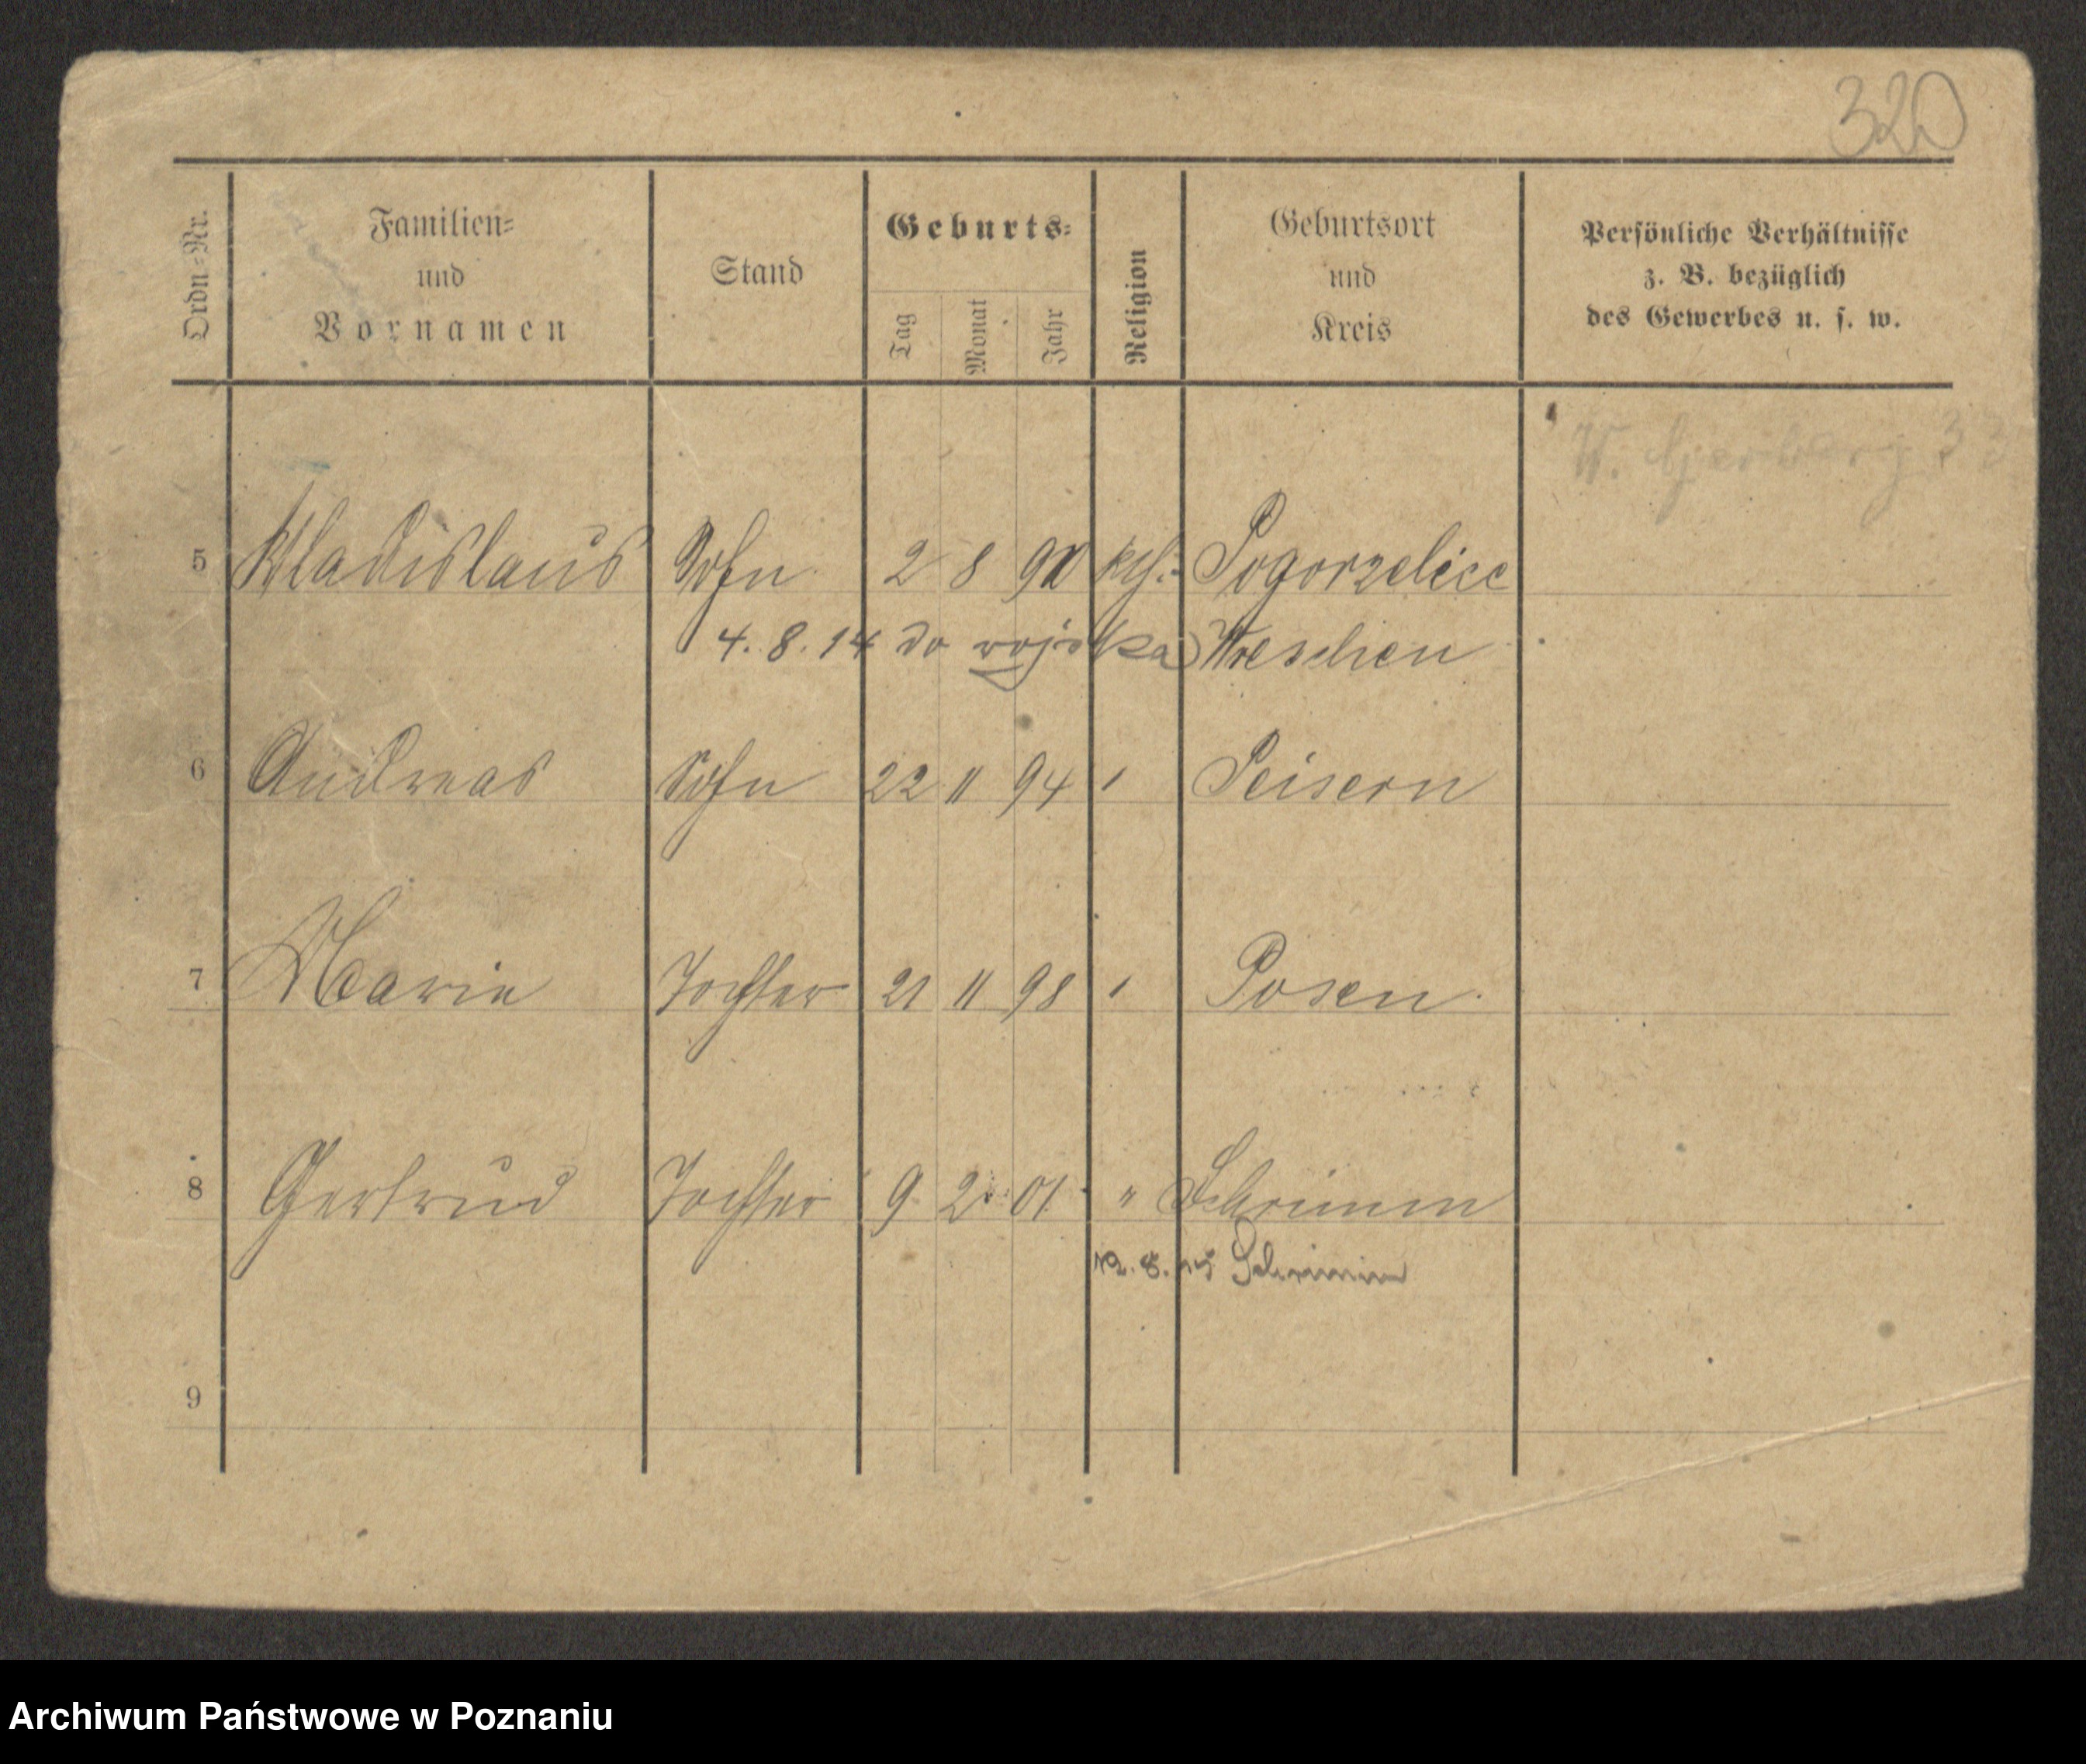 320
Ordn=Nr.
Familien=
und
Vornamen
Stand
Geburts=
Tag
Monat
Jahr
Religion
Geburtsort
und
Kreis
Persönliche Verhältnisse
z. B. bezüglich
des Gewerbes u. s. w.
5 Wladislaus Sohn 2 8 90 kth. Pogorzelice
4. 8. 14 do wojska Wreschen
6 Andreas Sohn 22 11 94 " Peisern
7 Marie Tochter 21 11 98 " Posen.
8 Gertrud Tochter 9 2 01 " Schrimm
12. 8. 15 Schrimm
9
Archiwum Państwowe w Poznaniu